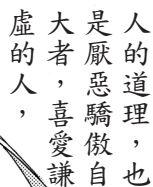 人的道理，也
是厭惡驕傲自
大者，喜愛謙
虛的人，